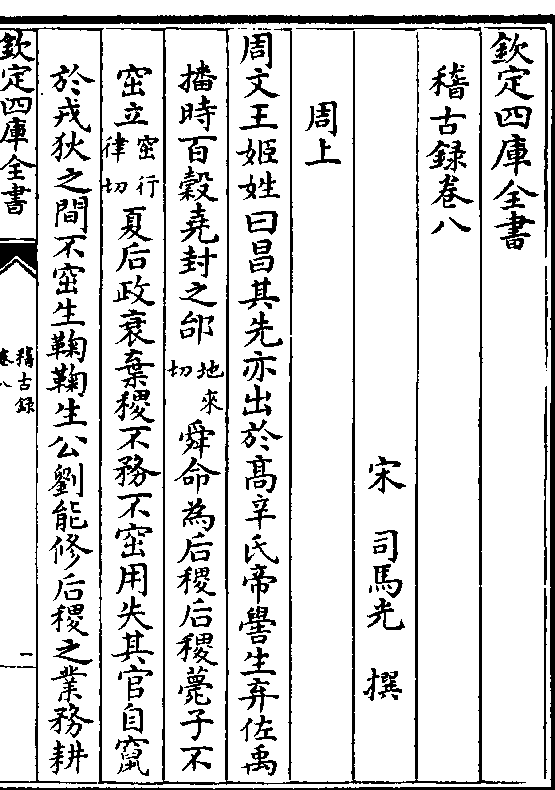 欽定四庫全書
稽古録卷八
宋 司馬光 撰
周上
周文王姬姓曰昌其先亦出於髙辛氏帝嚳生弃佐禹
播時百穀堯封之邰地來切舜命為后稷后稷薨子不
窋立窋行律切夏后政衰棄稷不務不窋用失其官自竄
於戎狄之間不窋生鞠鞠生公劉能修后稷之業務耕
欽定四庫全書
稽古録
卷八
一